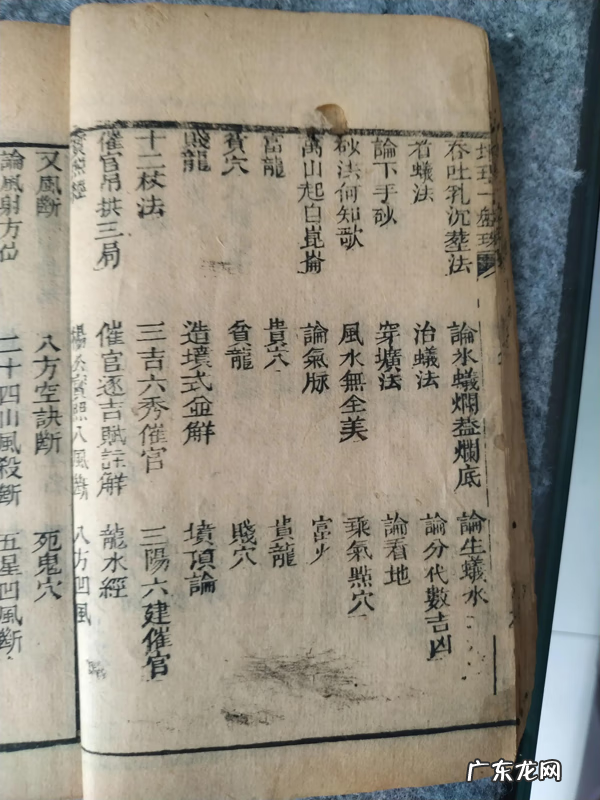 吞吐乳沉塟法 論水蟻爛盖爛底 論生蟻水
若蟻法 治蟻法 論分代數吉凶
論下手砂 穿壙法 論看地
砂法何知歌 風水無全美 乘氣點穴
萬山起自崑崙 論氣脉 富穴
富龍 貴穴 貴龍
貧穴 貧龍 賤穴
賤龍 造墳式全解 墳頂論
十二杖法 三吉六秀催官 三陽六建催官
催官吊拱三局 催官逐吉賦註解 龍水經
八風斷 八方凹風
又風斷 八方空訣斷 死鬼穴
論風射方位 二十四山風殺斷 五星凹風斷
广东龙网